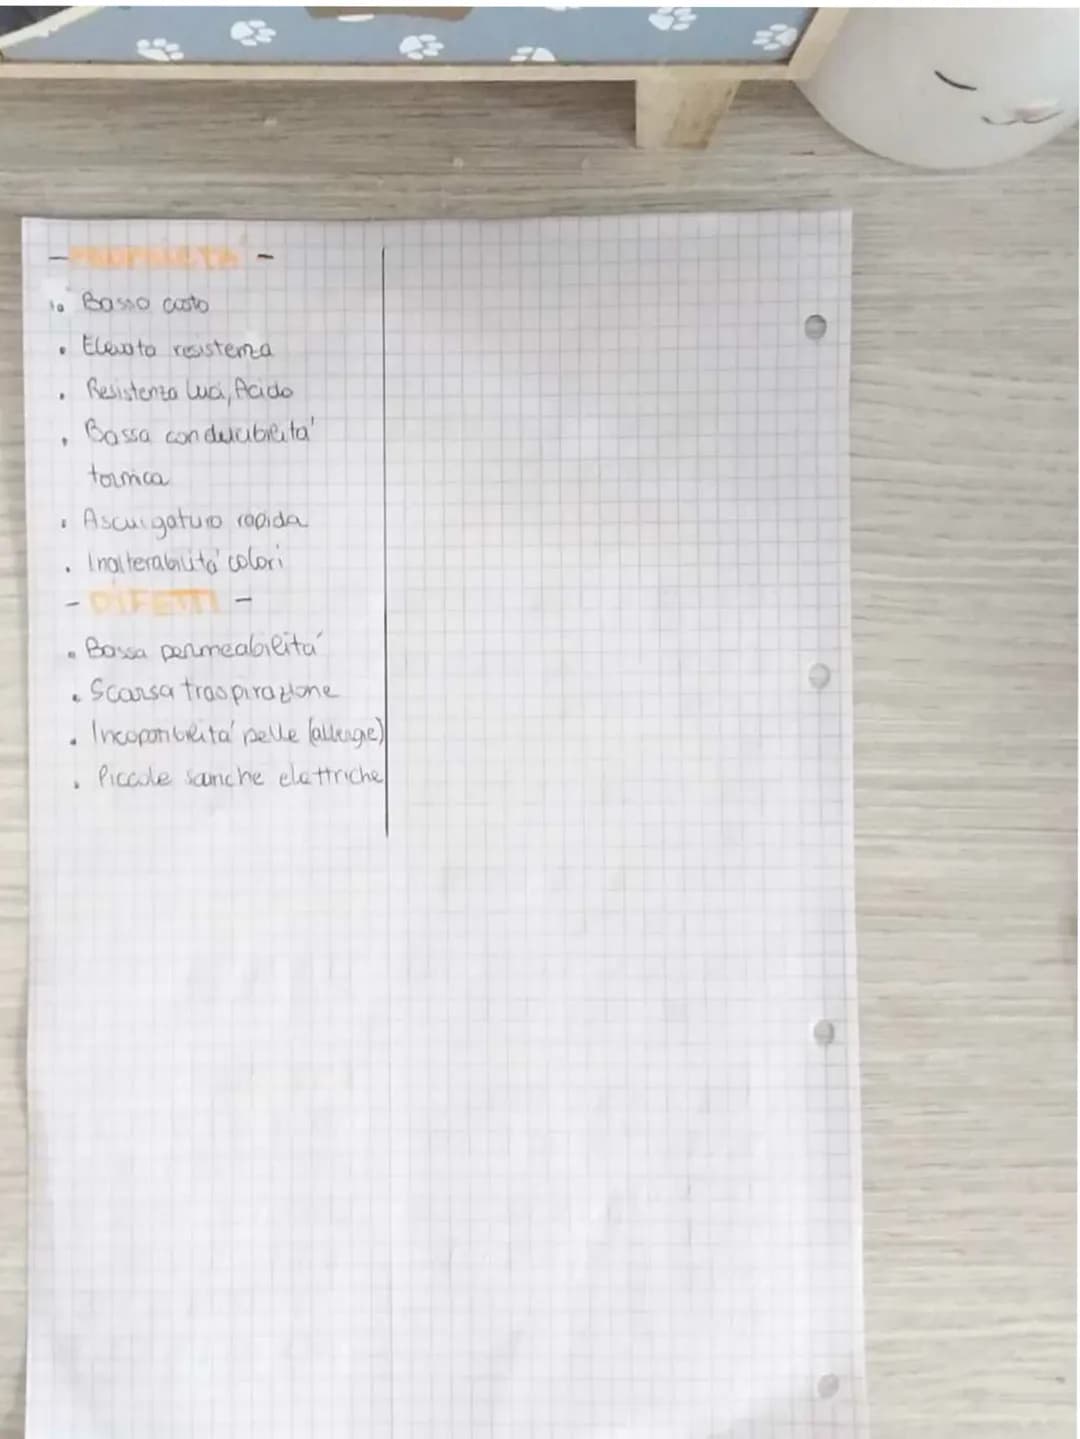 - PROPRIETA' -
Basso costo
• Elevata resistenza
• Resistenza luci, Acido
• Bassa conducibilita'
termica
• Asciugatura rapida
• Inalterabilita' colori
- DIFETTI -
• Bassa permeabilita'
• Scarsa traspirazione
• Incopatibilita' pelle (allergie)
• Piccole scariche elettriche